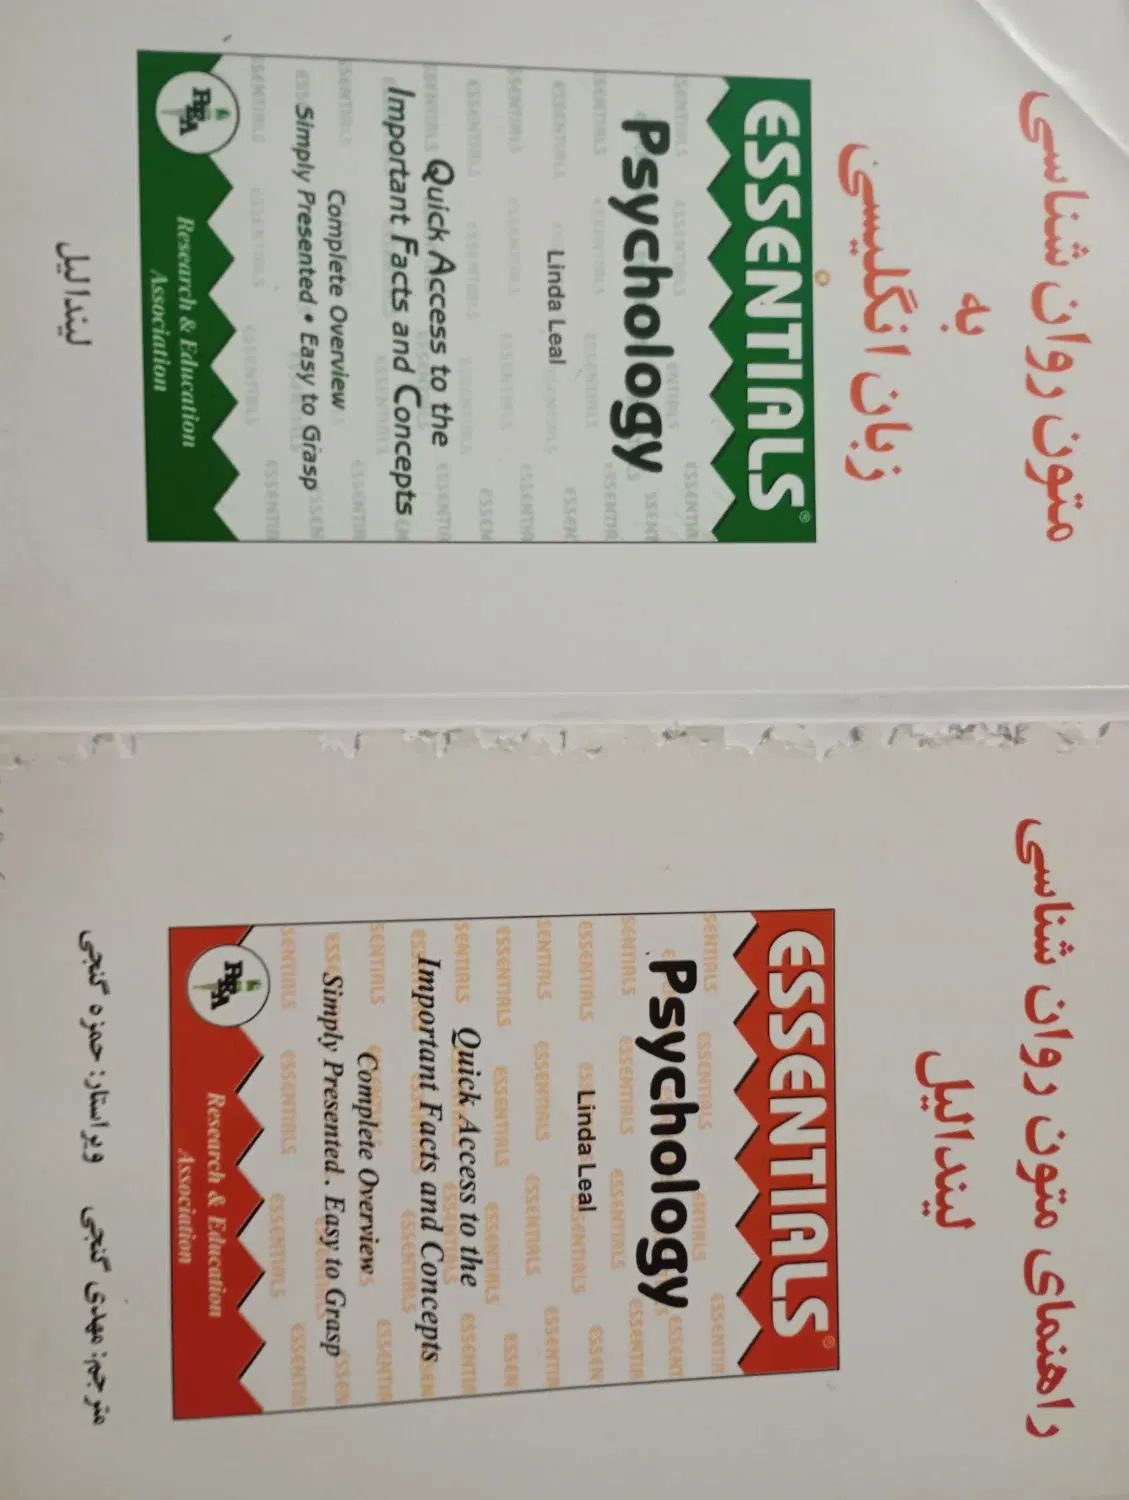 متون روان شناسی
به
زبان انگلیسی
ESSENTIALS®
Psychology
Linda Leal
Quick Access to the
Important Facts and Concepts
Complete Overview
Simply Presented • Easy to Grasp
REA
Research & Education
Association
لیندا لیل
راهنمای متون روان شناسی
لیندا لیل
ESSENTIALS®
Psychology
Linda Leal
Quick Access to the
Important Facts and Concepts
Complete Overview
Simply Presented . Easy to Grasp
REA
Research & Education
Association
مترجم: مهدی گنجی ویراستار: حمزه گنجی